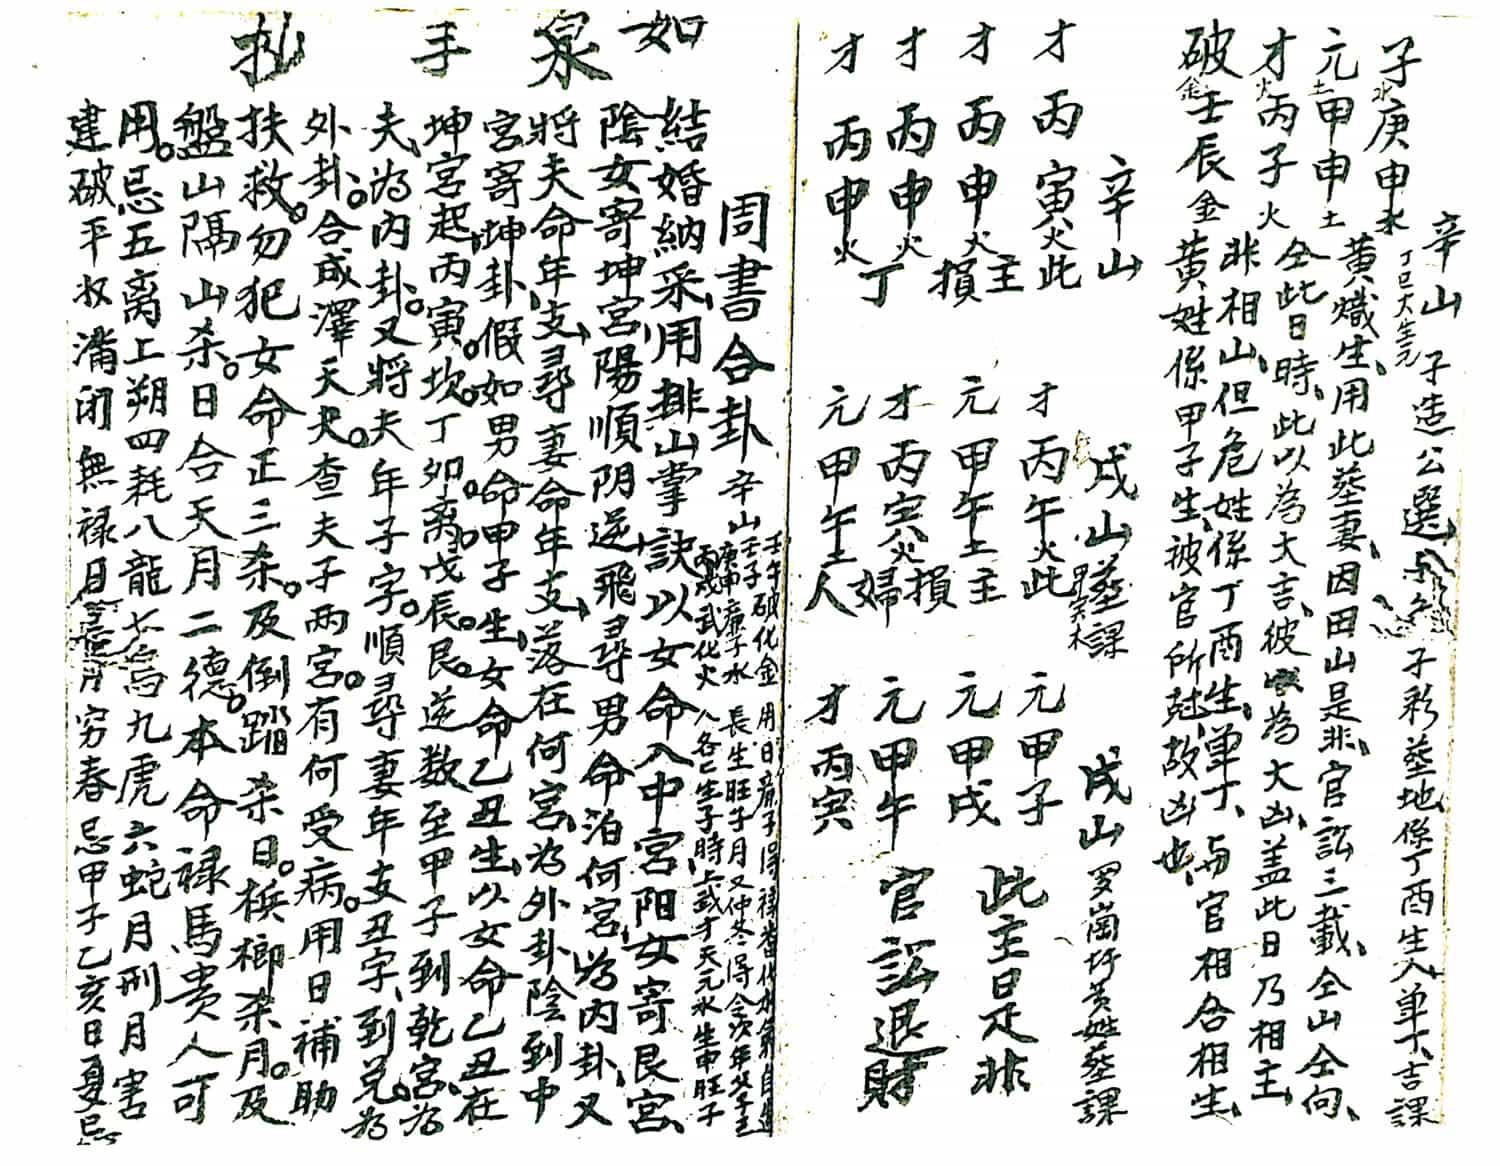 辛山子造公選
子彩塟地係丁酉生人單丁、吉課
丁巳大生元
子水庚申水
元土甲申土
才火丙子火
破金壬辰金
黃熾生、用此塟妻、因田山是非、官訟三載、仝山仝向、
仝此日時、此以為大吉、彼為大凶、蓋此日乃相主、
非相山、但危姓係丁酉生、單丁、与官相合相生、
黃姓係甲子生、被官所尅、故凶也、
辛山
才丙寅火此
才丙申火主
才丙申火損
才丙申火丁
戌山塟課
才丙午火此
元甲午土主
才丙寅火損婦
元甲午土人
戌山
罗崗圩黃姓塟課
元甲子
元甲戌
元甲午
才丙寅
此主日是非
官訟退財
如泉手抄
周書合卦
辛山
壬午破化金
壬子
庚申廉子水
丙戌武化火
長生旺子月又仲冬得令次年父子
人各亡生子時、上武才天元水生申旺子
結婚納采、用排山掌訣以女命入中宮阳女寄艮宮、
陰女寄坤宮、陽順阴逆、飛尋男命泊何宮、為內卦、又
將夫命年支、尋妻命年支、落在何宮、為外卦、陰到中
宮寄坤卦、假如男命甲子生、女命乙丑生、以女命乙丑在
坤宮起、丙寅。坎。丁卯。离。戊辰。艮。逆数至甲子到乾宮、為
夫、為內卦。又將夫年子字。順尋妻年支丑字、到兌。為
外卦。合成澤天夬。查夫子兩宮。有何受病。用日補助
扶救。勿犯女命正三杀。及倒踏杀日。梹榔杀月。及
盤山隔山杀。日合天月二德。本命禄馬贵人可
用。忌五离上朔四耗八龍七鳥九虎六蛇月刑月害
建破平收滿闭無禄日月穷春忌甲子乙亥日夏忌